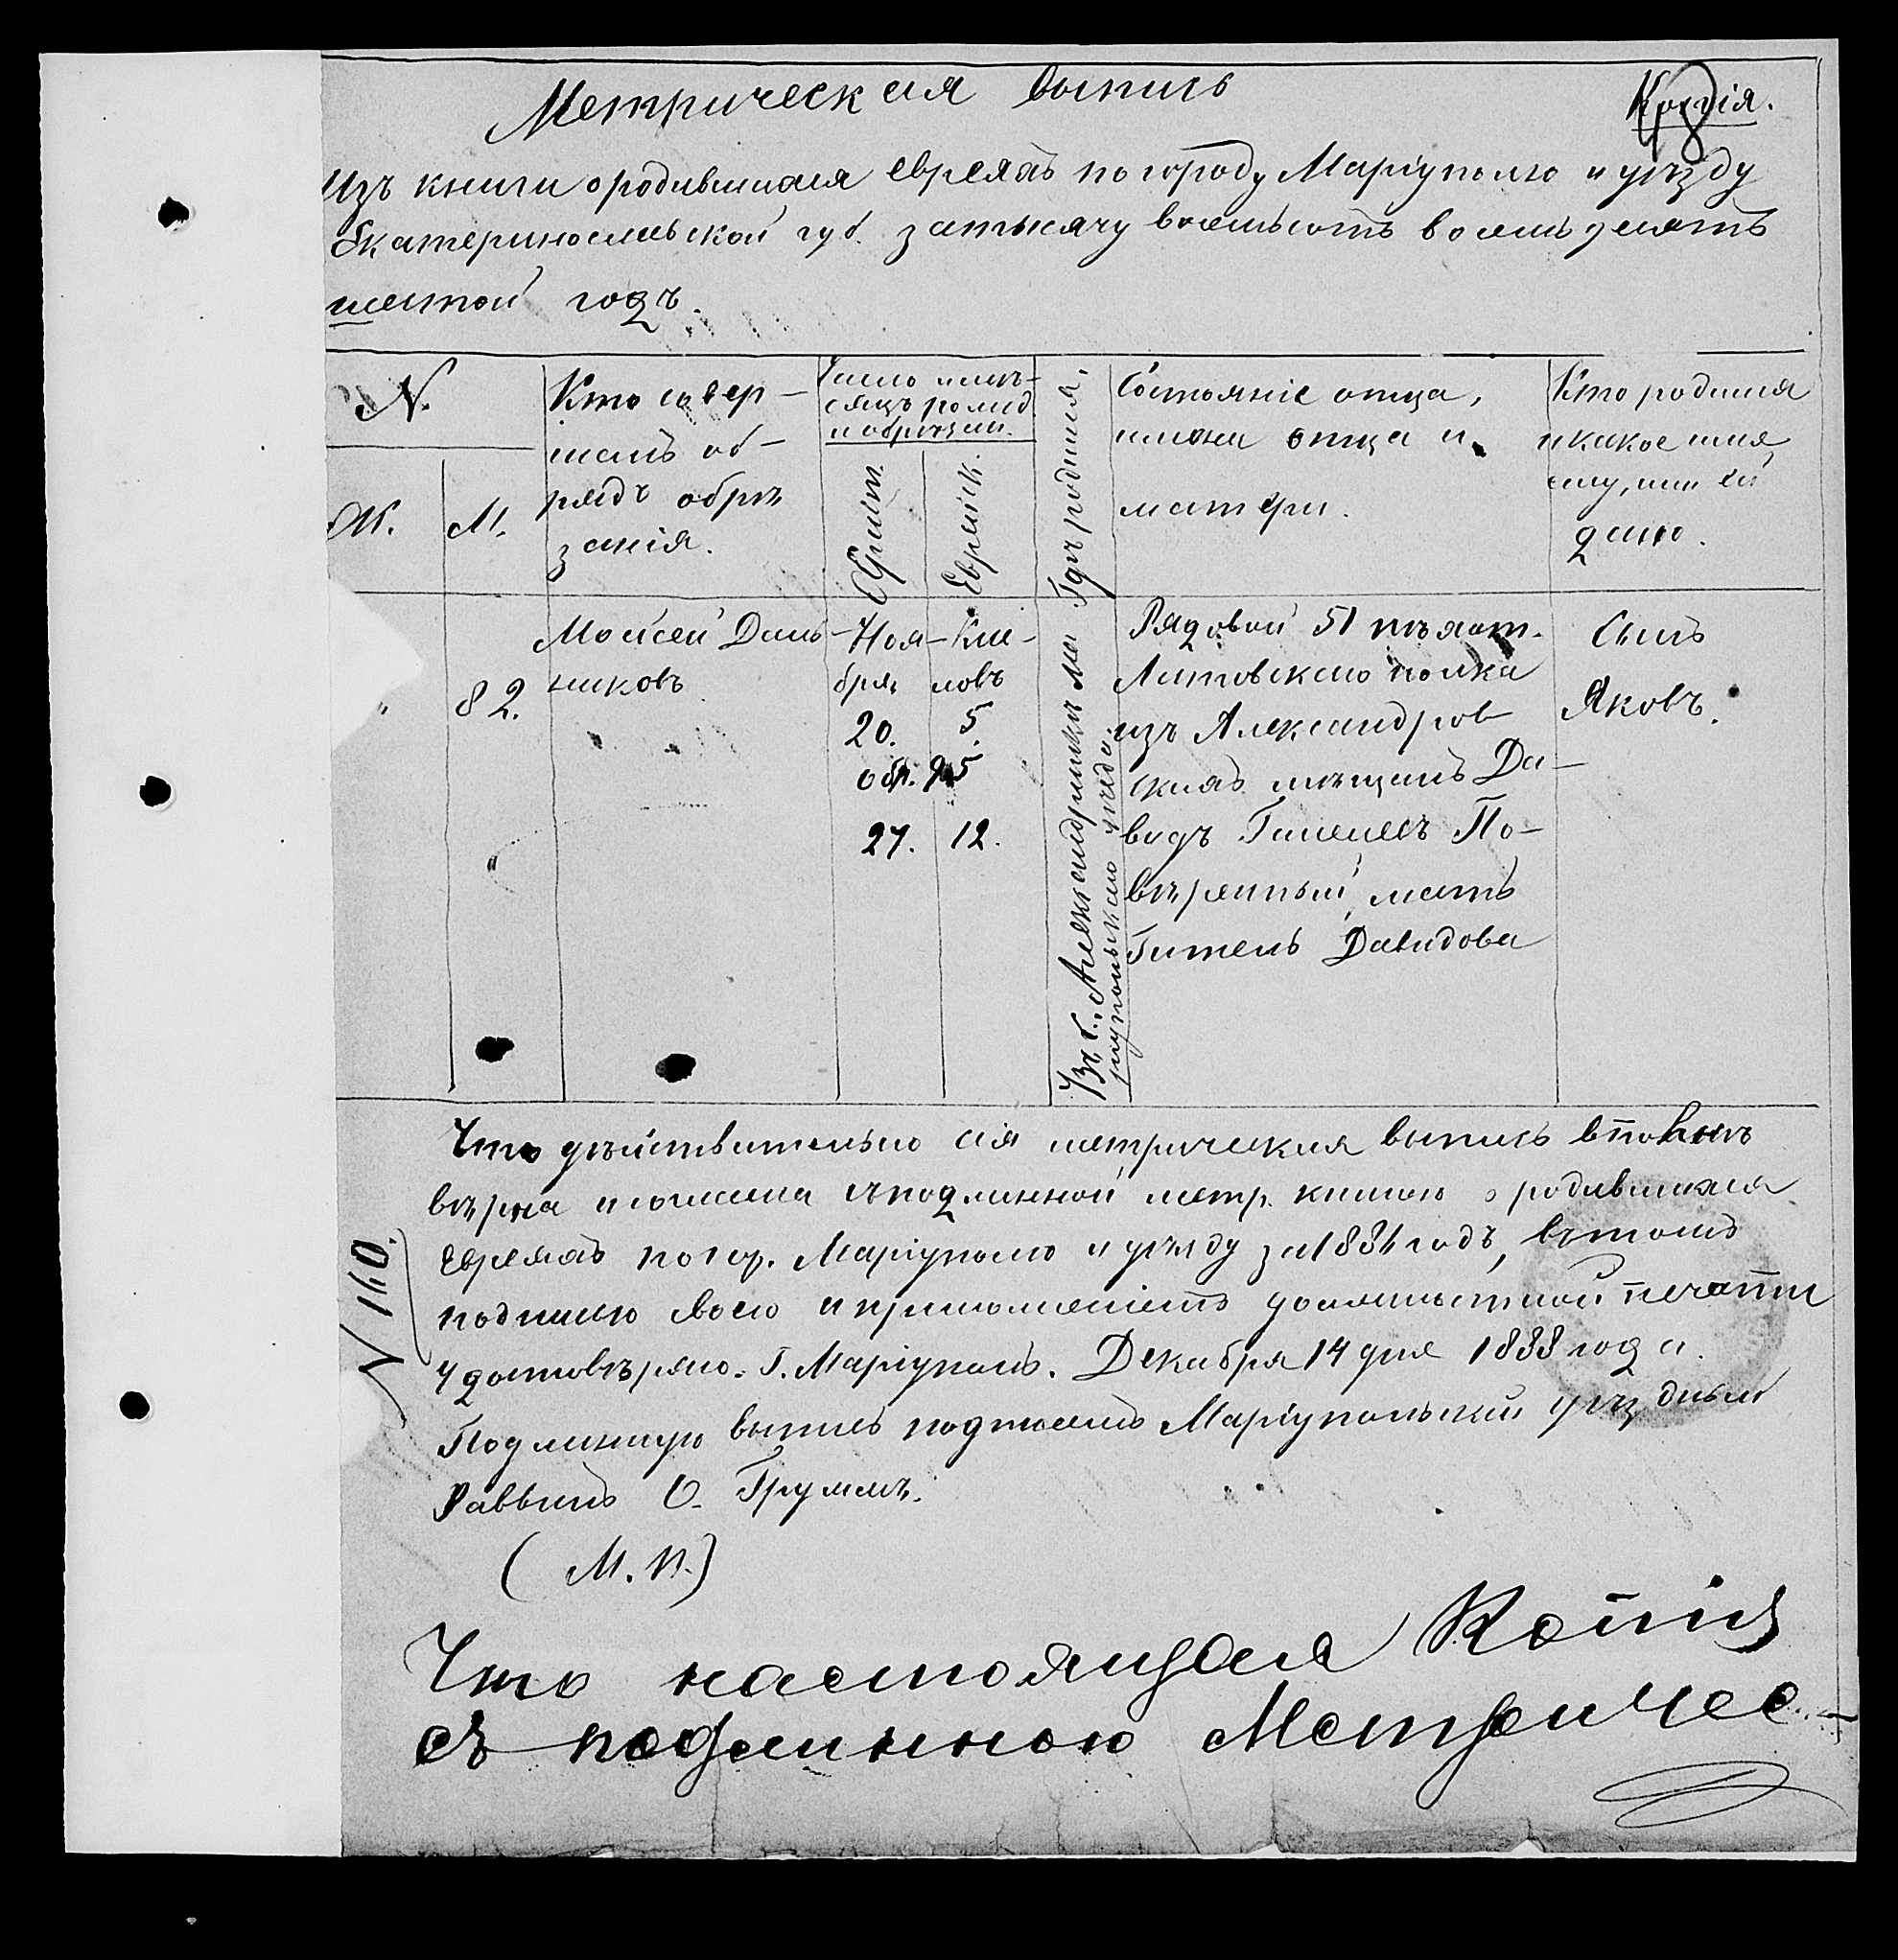 Метрическая выпись
Копія.
Изъ книги о родившихся евреяхъ по городу Маріуполю и уѣзду
Екатеринославской губ. за тысячу восемьсотъ восемьдесятъ
шестой годъ.
N.
Ж.
М.
Кто совер-
шалъ об-
рядъ обрѣ
занія.
Число и мѣ-
сяцъ рожд.
и обрѣзан.
Христ.
Еврейск.
Гдѣ родился,
Состояніе отца,
имена отца и
матери.
Кто родился
и какое имя
ему, или ей
дано.
"
82.
"
Моисей Даль-
никовъ
Ноя-
бря
20.
обр.
27.
Кис-
левъ
5.
12.
Въ с. Александринкѣ Ма
ріупольскаго уѣзда.
Рядовой 51 пѣхот.
Литовскаго полка
изъ Александров
скихъ мѣщанъ Да-
видъ Гилелевъ По-
вѣренный, мать
Гитель Давидова
Сынъ
Яковъ.
Что дѣйствительно сія метрическая выпись вполнѣ
вѣрна и согласна съ подлинной метр. книгою о родившихся
евреяхъ по гор. Маріуполю и уѣзду за 1886 годъ, въ томъ
подписью своею и приложеніемъ должностной печати
удостовѣряю. Г. Маріуполь. Декабря 14 дня 1888 года.
N 1160.
Подлинную выпись подписалъ Маріупольскій уѣздный
Раввинъ О. Груммъ.
(М.П.)
Что настоящая Копія
съ подлинною Метричес-